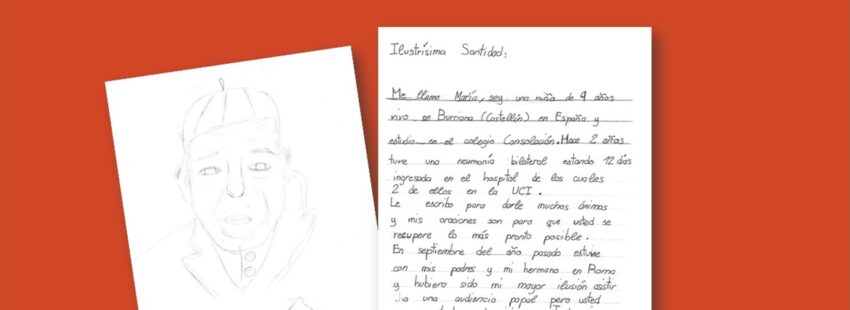 Ilustrísima Santidad:
Me llamo María, soy una niña de 9 años
vivo en Burriana (Castellón) en España y
estudio en el colegio Consolación. Hace 2 años
tuve una neumonía bilateral estando 12 días
ingresada en el hospital de los cuales
2 de ellos en la UCI.
Le escribo para darle muchos ánimos
y mis oraciones son para que usted se
recupere lo más pronto posible.
En septiembre del año pasado estuve
con mis padres y mi hermano en Roma
y hubiera sido mi mayor ilusión asistir
a una audiencia papal pero usted